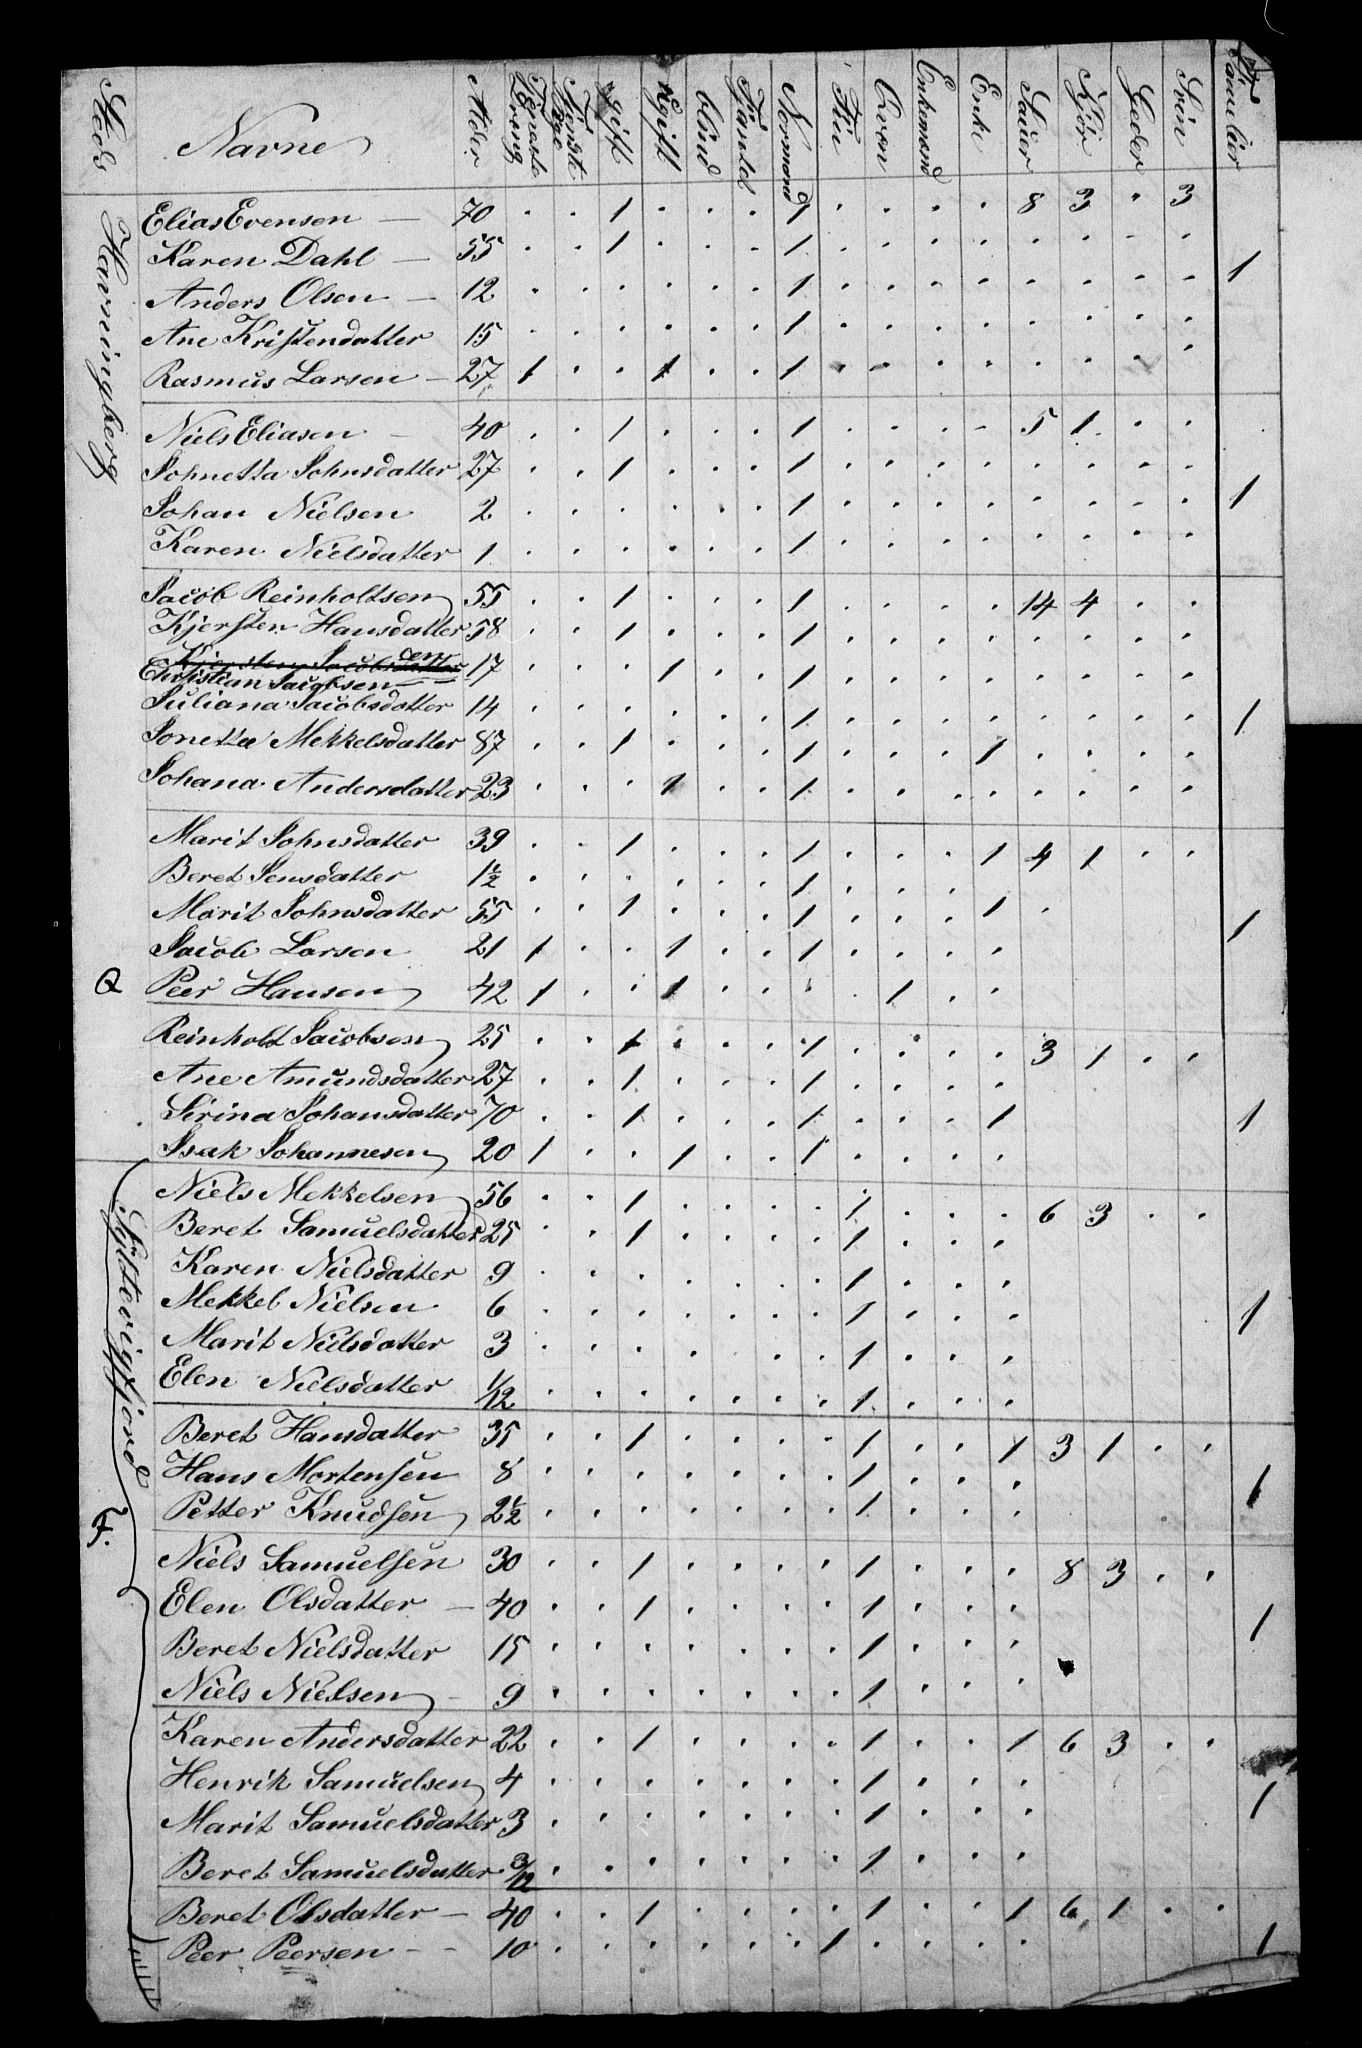 Steds Navne Alder Tieneste Dreng Tienste Pige gift Ugift blind Normand Fin Qvæn Enkemand Enke Sauer Kjør Geder Svin Familier
Havningberg
Elias Evensen — 70 · · 1 · · · 1 · · · · 8 3 · 3
Karen Dahl — 55 · · 1 · · · 1 · · · · · · · · 1
Anders Olsen — 12 · · · · · · 1 · · · · · · · ·
Ane Kristendatter 15 · · · · · · 1 · · · · · · · ·
Rasmus Larsen — 27 1 · · 1 · · 1 · · · · · · · ·
Niels Eliasen — 40 · · 1 · · · 1 · · · · 5 1 · ·
Johnetta Johnsdatter 27 · · 1 · · · 1 · · · · · · · ·
Johan Nielsen 2 · · · · · · 1 · · · · · · · · 1
Karen Nielsdatter 1 · · · · · · 1 · · · · · · · ·
Jacob Reinholtsen 55 · · 1 · · · 1 · · · · 14 4 · ·
Kjersten Hansdatter 58 · · 1 · · · 1 · · · · · · · ·
Christian Jacobsen 17 · · · 1 · · 1 · · · · · · · ·
Juliana Jacobsdatter 14 · · · · · · 1 · · · · · · · · 1
Jonetta Mekkelsdatter 87 · · 1 · · · 1 · · · 1 · · · ·
Johana Andersdatter 23 · · · 1 · · 1 · · · · · · · ·
Marit Johnsdatter 39 · · 1 · · · 1 · · · 1 4 1 · ·
Beret Jensdatter 1½ · · · · · · 1 · · ·
Marit Johnsdatter 55 · · 1 · · · 1 · · · 1 · 1
Jacob Larsen 21 1 · · 1 · · 1 · · · ·
Q Peer Hansen 42 1 · · 1 · · · · 1 · ·
Reinholt Jacobsen 25 · · 1 · · · 1 · · · · 3 1 · ·
Ane Amundsdatter 27 · · 1 · · · 1 · · · ·
Sirina Johansdatter 70 · · 1 · · · 1 · · · 1 1
Isak Johannesen 20 1 · · 1 · · 1 · · · ·
Syltevigfjord
F.
Niels Mekkelsen 56 · · 1 · · · · 1 · · · 6 3 · ·
Beret Samuelsdatter 25 · · 1 · · · · 1 · · ·
Karen Nielsdatter 9 · · · · · · · 1 · · ·
Mekkel Nielsen 6 · · · · · · · 1 · · · 1
Marit Nielsdatter 3 · · · · · · · 1 · · ·
Elen Nielsdatter 1/12 · · · · · · · 1 · · ·
Beret Hansdatter 35 · · 1 · · · · 1 · · 1 3 1 · ·
Hans Mortensen 8 · · · · · · · 1 · · · 1
Petter Knudsen 2½ · · · · · · · 1 · · ·
Niels Samuelsen 30 · · 1 · · · · 1 · · · 8 3 · ·
Elen Olsdatter — 40 · · 1 · · · · 1 · · · 1
Beret Nielsdatter 15 · · · · · · · 1 · · ·
Niels Nielsen — 9 · · · · · · · 1 · · ·
Karen Andersdatter 22 · · 1 · · · · 1 · · 1 6 3 · ·
Henrik Samuelsen 4 · · · · · · · 1 · · ·
Marit Samuelsdatter 3 · · · · · · · 1 · · · 1
Beret Samuelsdatter 3/12 · · · · · · · 1 · · ·
Beret Olsdatter — 40 · · 1 · · · · 1 · · 1 6 1 · ·
Peer Peersen — — 10 · · · · · · 1 · · · · 1